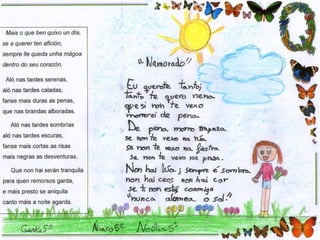 Mais o que ben quixo un día,
se a querer ten afición,
sempre lle queda unha mágoa
dentro do seu corazón.
Aló nas tardes serenas,
aló nas tardes caladas,
fanse mais duras as penas,
que nas brandas alboradas.
Aló nas tardes sombrías
aló nas tardes escuras,
fanse mais cortas as risas
mais negras as desventuras.
Que non hai serán tranquila
para quen remorsos garda,
e máis presto se aniquila
canto máis a noite agarda.
"Namorado"
Eu querote tantoj
tanto te quero nena
que si non te vexo
morrerei de pena.
De pena morro
se non te vexo na rúa
se non te vexo na fiestra
se non te vexo na
Non hai lúa ; sempre é sombra
non hai ceos non hai cor
se ti non estás conmigo
"nunca alomea o sol"